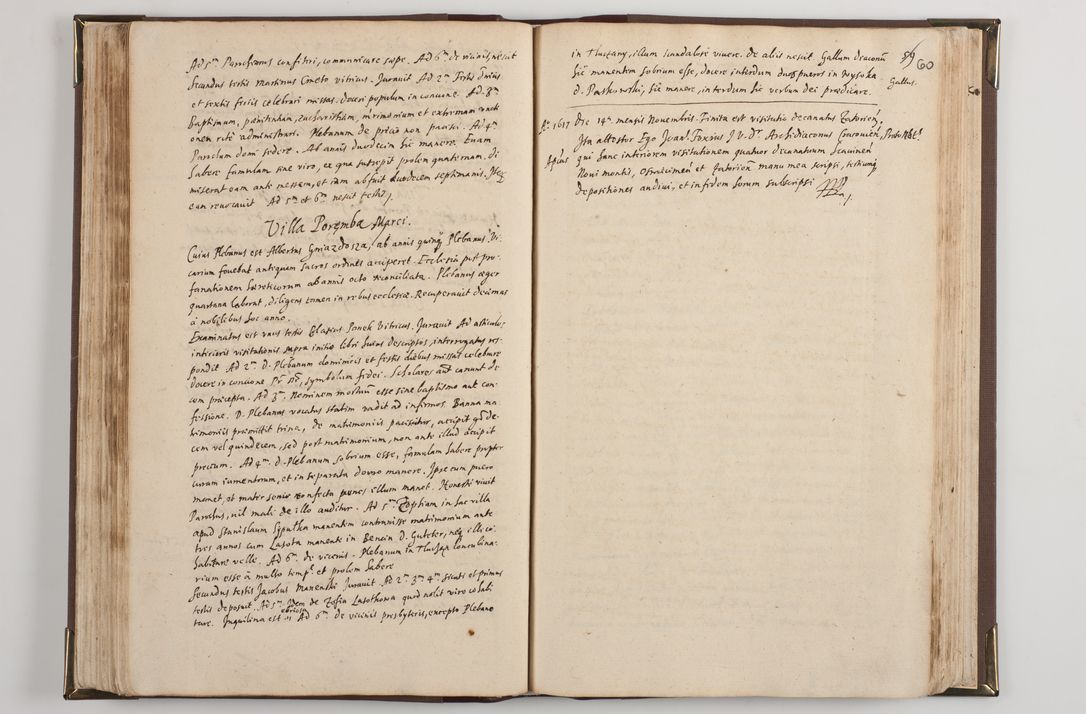 Ad 5m Parochianos confiteri, communicare sæpe. Ad 6m de vicinis, nescit
Secundus testis Martinus Cmeto vitricus. Juravit Ad 2m Festis diebus
et sextis feriis celebrari missas. doceri populum in concione. Ad 3m
Baptismum, pænitentiam, eucharistiam, matrimonium et extremam uncti
onem rite administrari. Plebanum de pretio non pacisci. Ad 4m
Parochum domi sedere. Ab annis duodecim hic manere. Eum
habere famulam sine viro, ex qua suscepit prolem quaternam. Di
miserat eam ante messem, et iam abfuit duodecem septimanis. Nec
eam revocavit Ad 5m et 6m nescit testis.
Villa Poremba Marci.
Cuius Plebanus est Albertus Gniazdosza, ab annis quinque Plebanus. Vi
carium fovebat antequam sacros ordines acciperet. Ecclesia post pro
fanationem hæreticorum ab annis octo reconciliata. Plebanus æger
quartana laborat, diligens tamen in rebus ecclesiæ. Recuperavit decimas
à nobilibus hoc anno.
Examinatus est unus testis Blasius Sonek Vitricus. Juravit Ad articulos
interioris visitationis supra initio libri huius descriptos, interrogatus res
pondit Ad 2m D. Plebanum dominicis et festis diebus missas celebrare
docere in concione Pr nr, symbolum fidei. Scholares aut canunt de
cem præcepta. Ad 3m Neminem mortuum esse sine baptismo aut con
fessione. D. Plebanus vocatus statim vadit ad infirmos. Banna ma
trimonii præmittit trina, de matrimoniis paciscitur, accipit de
cem vel quindecem, sed post matrimonium, non ante illud accipit
precium. Ad 4m. d. Plebanum sobrium esse, famulam habere propter
curam iumentorum, et in separata domo manere. Ipse cum puero
manet et mater senio confecta penes illum manet. Honeste vivit
Parochus, nil mali de illo auditur. Ad 5m Zophiam in hac villa
apud Stanislaum Syputka manentem contraxisse matrimonium ante
tres annos cum Lasota manente in Bencin D. Guteter, nec illi co
habitare velle. Ad 6m de vicinis. Plebanum in Tluczan concubina
rium esse à multo tempe et prolem habere
Secundus testis Jacobus Manenski Juravit Ad 2m 3m 4m sicuti et primus
testis deposuit. Ad 5m Idem de Zofia Lasothowa quod nolit viro cohabi
tare. Inquilina est ebriosa Ad 6m de vicinis presbyteris, excepto Plebano
in Tluczany, illum scandalose vivere. de aliis nescit Gallum diaconum
hic manentem sobrium esse, docere interdum duos pueros in Wysoka
D. Paskowski, hic manere, interdum hic verbum dei prædicare.
Gallus.
59
60
Ao 1617 Die 14a mensis Novembris. Finita est visitatio decanatus Zatorien.
Ita attestor Ego Joan. Foxius J. V. Dr Archidiaconus Cracovien, Proto Not.
Apcus qui hanc interiorem visitationem quatuor decanatuum Scavinen
Novi montis, Oswiecimen et Zatorien manu mea scripsi, testiumque
depositiones audivi, et in fidem horum subscripsi